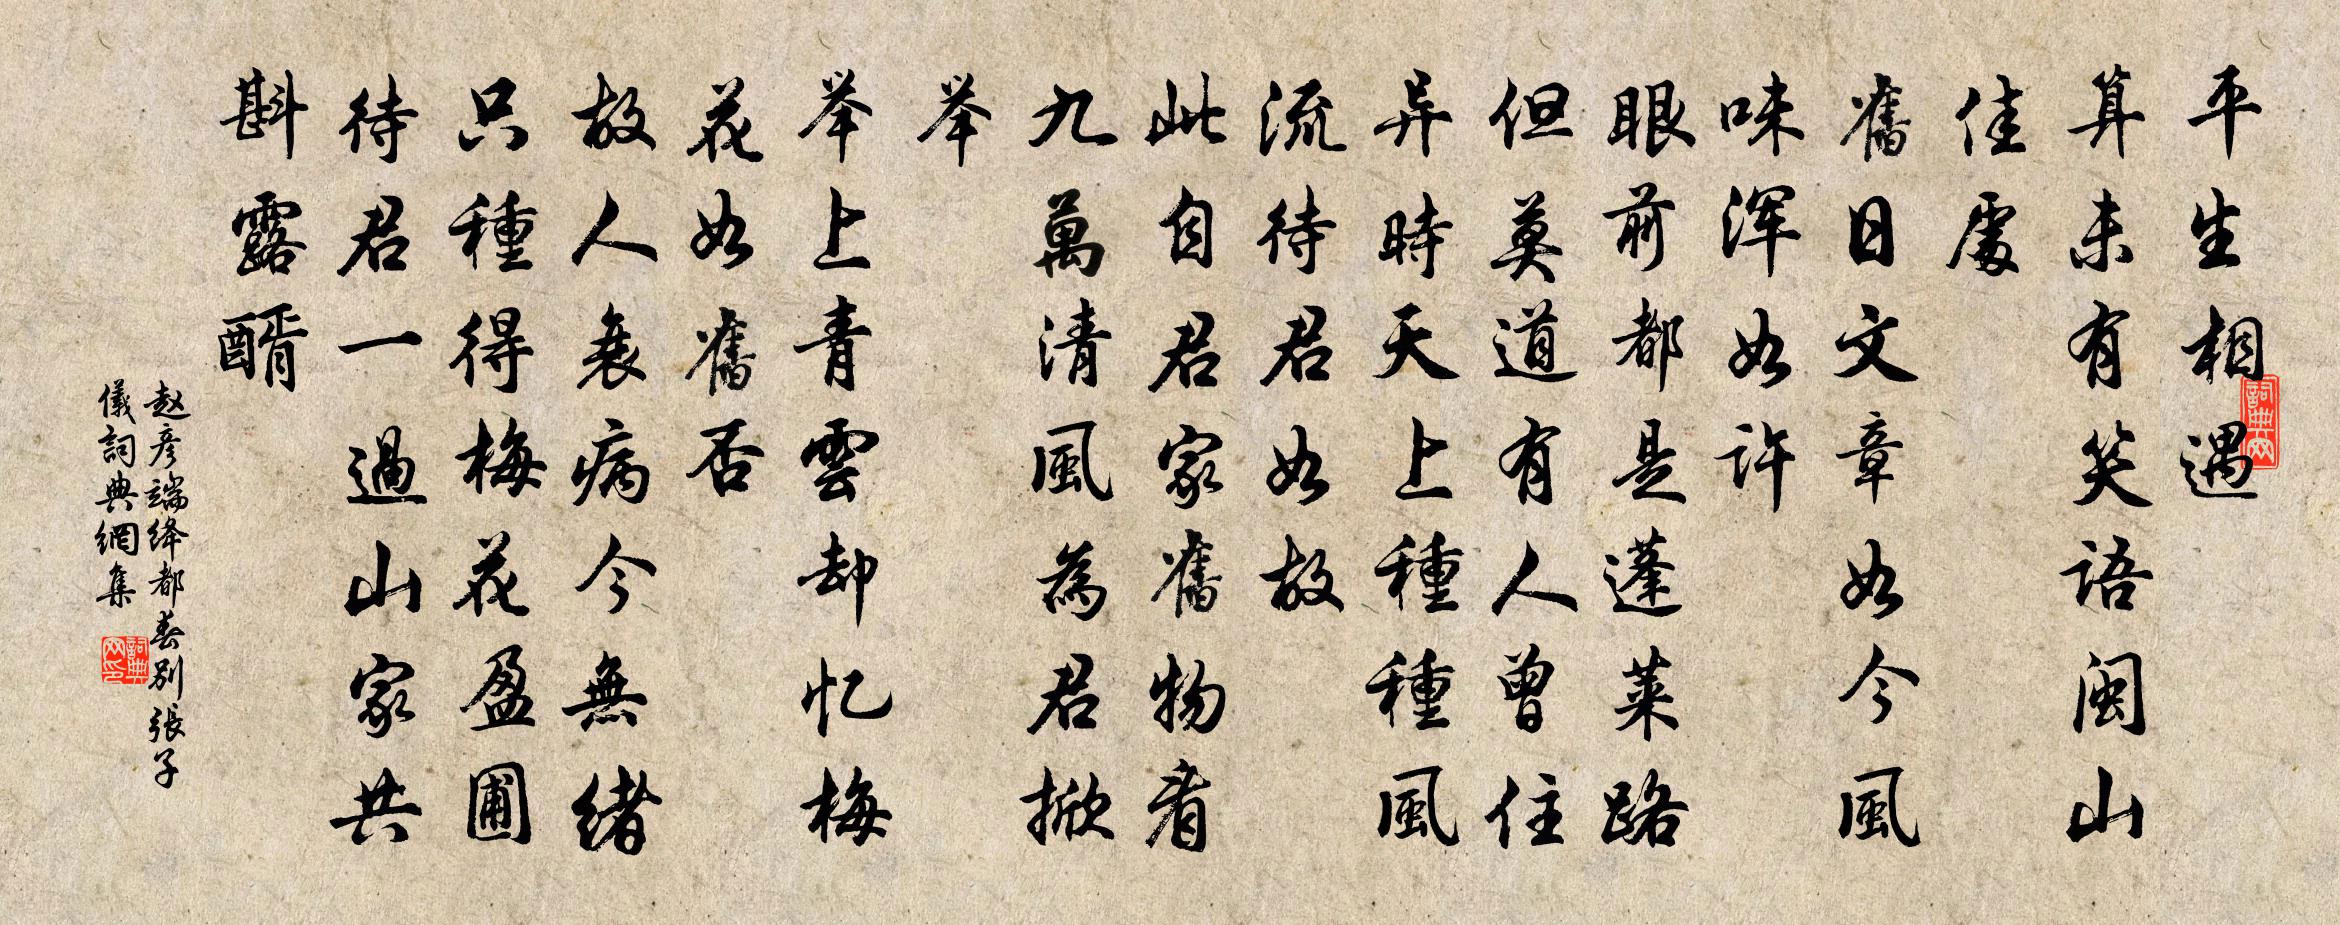 平生相遇
算未有笑语闽山
佳處
舊日文章如今風
味浑如许
眼前都是蓬莱路
但莫道有人曾住
异時天上種種風
流待君如故
此自君家舊物看
九萬清風為君掀
举
举上青雲却忆梅
花如舊否
故人衰病今無绪
只種得梅花盈圃
待君一過山家共
斟露醑
赵彦端绛都春别張子
儀詞典網集
詞典网
詞典网印